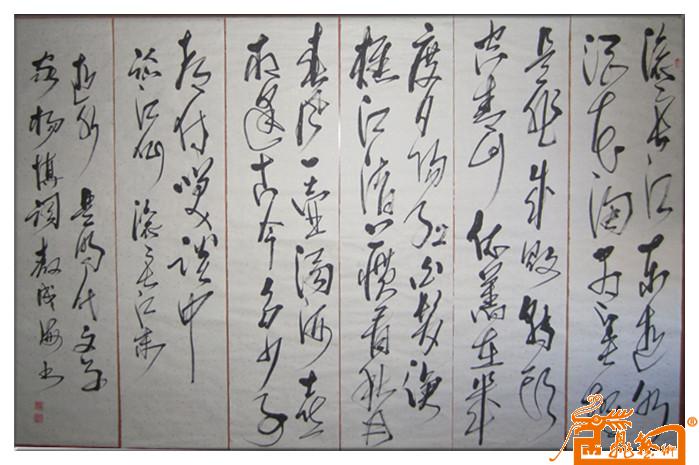 滚滚长江东逝水
浪花淘尽英雄
是非成败转头
空青山依旧在几
度夕阳红白发渔
樵江渚上惯看秋月
春风一壶浊酒喜
相逢古今多少事
都付笑谈中
临江仙 滚滚长江东
逝水 是明代文学
家杨慎词 成海书